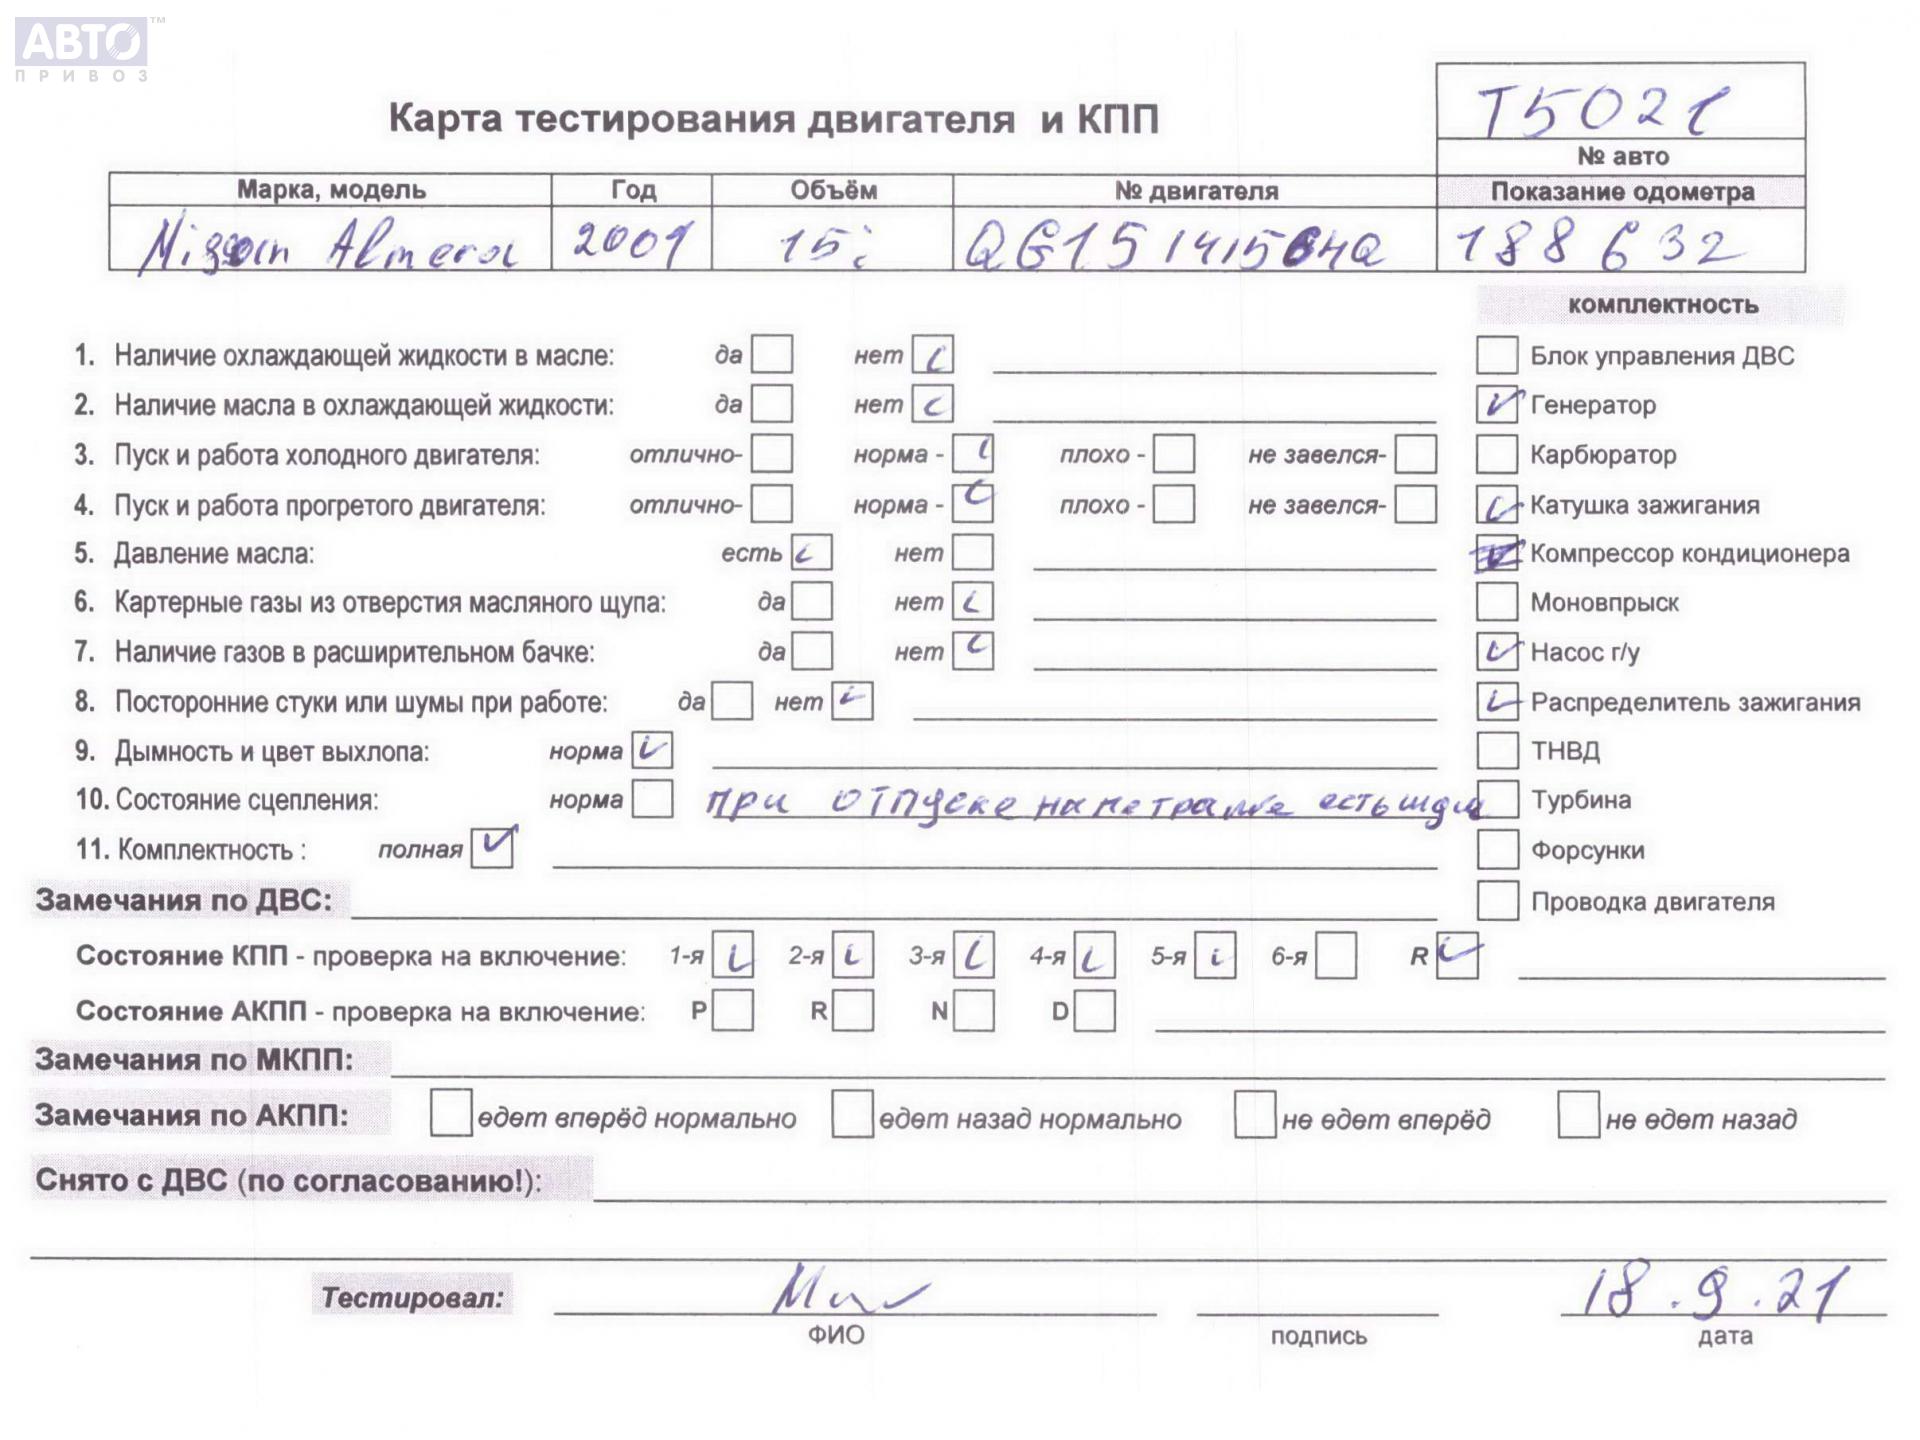 АВТО™
ПРИВОЗ
Т5021
Карта тестирования двигателя и КПП
№ авто
Марка, модель Год Объём № двигателя Показание одометра
Nissan Almera 2001 15i QG15 188 632
комплектность
1. Наличие охлаждающей жидкости в масле: да нет Блок управления ДВС
2. Наличие масла в охлаждающей жидкости: да нет Генератор
3. Пуск и работа холодного двигателя: отлично- норма - плохо - не завелся- Карбюратор
4. Пуск и работа прогретого двигателя: отлично- норма - плохо - не завелся- Катушка зажигания
5. Давление масла: есть нет Компрессор кондиционера
6. Картерные газы из отверстия масляного щупа: да нет Моновпрыск
7. Наличие газов в расширительном бачке: да нет Насос г/у
8. Посторонние стуки или шумы при работе: да нет Распределитель зажигания
9. Дымность и цвет выхлопа: норма ТНВД
10. Состояние сцепления: норма при отпуске есть Турбина
11. Комплектность : полная Форсунки
Замечания по ДВС: Проводка двигателя
Состояние КПП - проверка на включение: 1-я 2-я 3-я 4-я 5-я 6-я R
Состояние АКПП - проверка на включение: P R N D
Замечания по МКПП:
Замечания по АКПП: едет вперёд нормально едет назад нормально не едет вперёд не едет назад
Снято с ДВС (по согласованию!):
Тестировал: 18.9.21
ФИО подпись дата